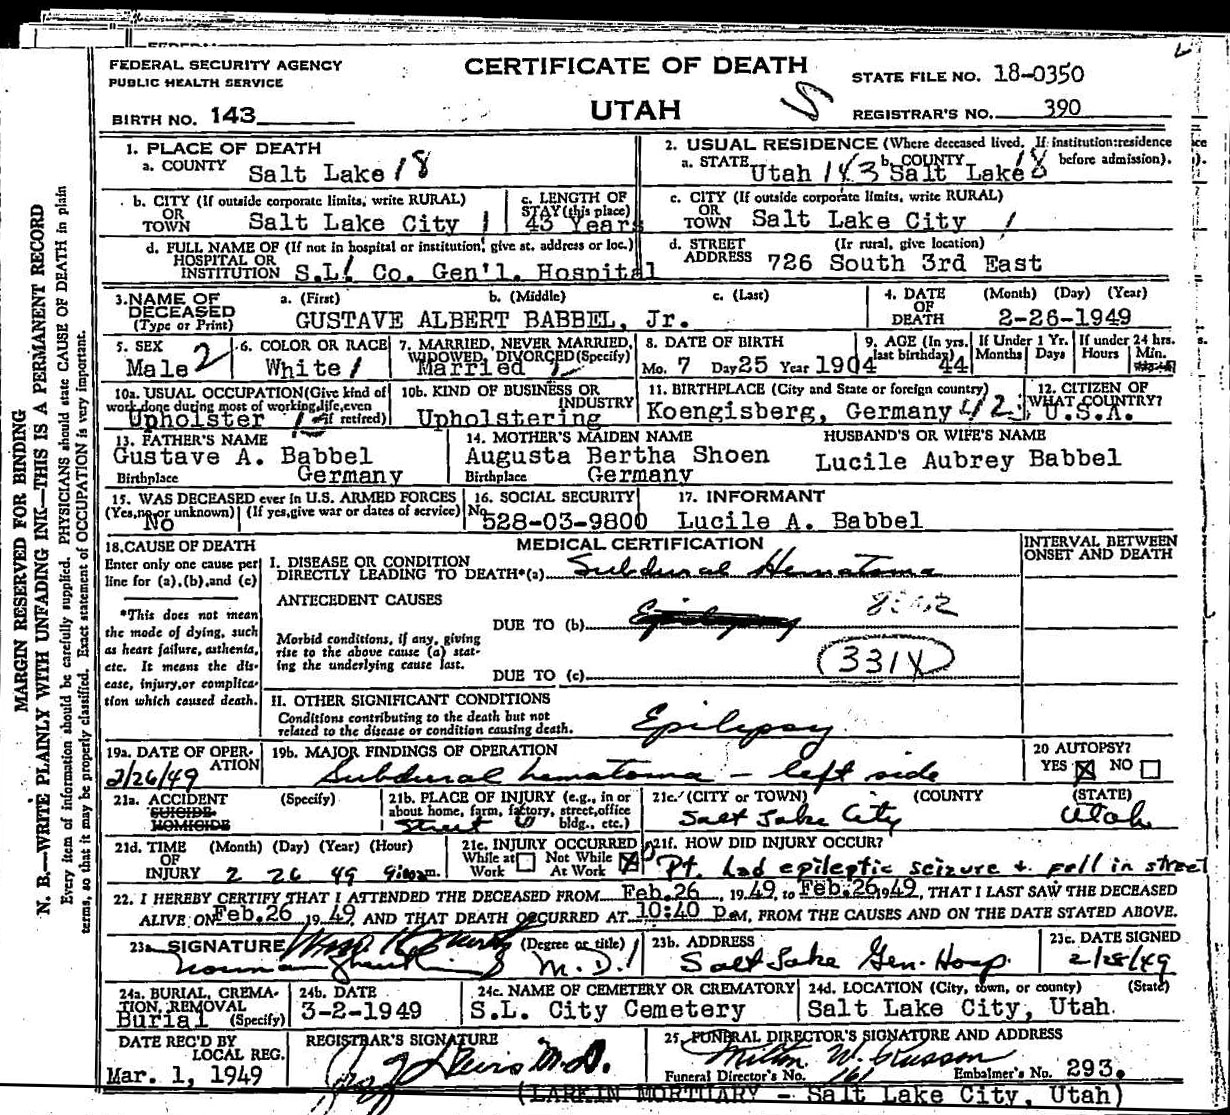 FEDERAL SECURITY AGENCY
PUBLIC HEALTH SERVICE
CERTIFICATE OF DEATH
STATE FILE NO. 18-0350
BIRTH NO. 143
UTAH
REGISTRAR'S NO. 390
MARGIN RESERVED FOR BINDING
N. B.—WRITE PLAINLY WITH UNFADING INK—THIS IS A PERMANENT RECORD
Every item of information should be carefully supplied. PHYSICIANS should state CAUSE OF DEATH in plain
terms, so that it may be properly classified. Exact statement of OCCUPATION is very important.
1. PLACE OF DEATH
a. COUNTY Salt Lake 18
2. USUAL RESIDENCE (Where deceased lived. If institution:residence before admission).
a. STATE Utah 143 b. COUNTY Salt Lake 18
b. CITY (If outside corporate limits, write RURAL) OR TOWN Salt Lake City 1
c. LENGTH OF STAY (this place) 43 Years
c. CITY (If outside corporate limits, write RURAL) OR TOWN Salt Lake City 1
d. FULL NAME OF (If not in hospital or institution, give st. address or loc.) HOSPITAL OR INSTITUTION S.L. Co. Gen'l. Hospital
d. STREET ADDRESS (Ir rural, give location) 726 South 3rd East
3. NAME OF DECEASED (Type or Print)
a. (First) b. (Middle) c. (Last)
GUSTAVE ALBERT BABBEL, Jr.
4. DATE OF DEATH (Month) (Day) (Year)
2-26-1949
5. SEX Male 2
6. COLOR OR RACE White 1
7. MARRIED, NEVER MARRIED, WIDOWED, DIVORCED (Specify) Married 2
8. DATE OF BIRTH Mo. 7 Day 25 Year 1904
9. AGE (In yrs. last birthday) 44
If Under 1 Yr. Months Days
If under 24 hrs. Hours Min.
10a. USUAL OCCUPATION (Give kind of work done during most of working life, even if retired) Upholster
10b. KIND OF BUSINESS OR INDUSTRY Upholstering
11. BIRTHPLACE (City and State or foreign country) Koengisberg, Germany 423
12. CITIZEN OF WHAT COUNTRY? U.S.A.
13. FATHER'S NAME
Gustave A. Babbel
Birthplace Germany
14. MOTHER'S MAIDEN NAME
Augusta Bertha Shoen
Birthplace Germany
HUSBAND'S OR WIFE'S NAME
Lucile Aubrey Babbel
15. WAS DECEASED ever in U.S. ARMED FORCES
(Yes, no or unknown) (If yes, give war or dates of service)
No
16. SOCIAL SECURITY
No. 528-03-9800
17. INFORMANT
Lucile A. Babbel
18. CAUSE OF DEATH
Enter only one cause per line for (a), (b), and (c)
*This does not mean the mode of dying, such as heart failure, asthenia, etc. It means the disease, injury, or complication which caused death.
MEDICAL CERTIFICATION
INTERVAL BETWEEN ONSET AND DEATH
I. DISEASE OR CONDITION
DIRECTLY LEADING TO DEATH*(a) Subdural Hematoma
ANTECEDENT CAUSES
DUE TO (b) Epilepsy
Morbid conditions, if any, giving rise to the above cause (a) stating the underlying cause last.
331X
DUE TO (c)
II. OTHER SIGNIFICANT CONDITIONS
Conditions contributing to the death but not related to the disease or condition causing death.
Epilepsy
19a. DATE OF OPERATION 2/26/49
19b. MAJOR FINDINGS OF OPERATION
Subdural hematoma - left side
20 AUTOPSY?
YES ☒ NO ☐
21a. ACCIDENT SUICIDE HOMICIDE (Specify)
21b. PLACE OF INJURY (e.g., in or about home, farm, factory, street, office bldg., etc.) Street
21c. (CITY or TOWN) (COUNTY (STATE)
Salt Lake City Utah
21d. TIME OF INJURY (Month) (Day) (Year) (Hour)
2 26 49
21e. INJURY OCCURRED
While at Work ☐ Not While At Work ☒
21f. HOW DID INJURY OCCUR?
Pt. had epileptic seizure + fell in street
22. I HEREBY CERTIFY THAT I ATTENDED THE DECEASED FROM Feb. 26, 1949, to Feb. 26, 1949, THAT I LAST SAW THE DECEASED
ALIVE ON Feb. 26 1949 AND THAT DEATH OCCURRED AT 10:40 p.M, FROM THE CAUSES AND ON THE DATE STATED ABOVE.
23a. SIGNATURE (Degree or title)
Norman M.D.
23b. ADDRESS
Salt Lake Gen. Hosp.
23c. DATE SIGNED
2/28/49
24a. BURIAL, CREMATION, REMOVAL (Specify) Burial
24b. DATE
3-2-1949
24c. NAME OF CEMETERY OR CREMATORY
S.L. City Cemetery
24d. LOCATION (City, town, or county) (State)
Salt Lake City, Utah
DATE REC'D BY LOCAL REG.
Mar. 1, 1949
REGISTRAR'S SIGNATURE
M.D.
25. FUNERAL DIRECTOR'S SIGNATURE AND ADDRESS
Milton W.
Funeral Director's No. 161 Embalmer's No. 293.
(LARKIN MORTUARY - Salt Lake City, Utah)